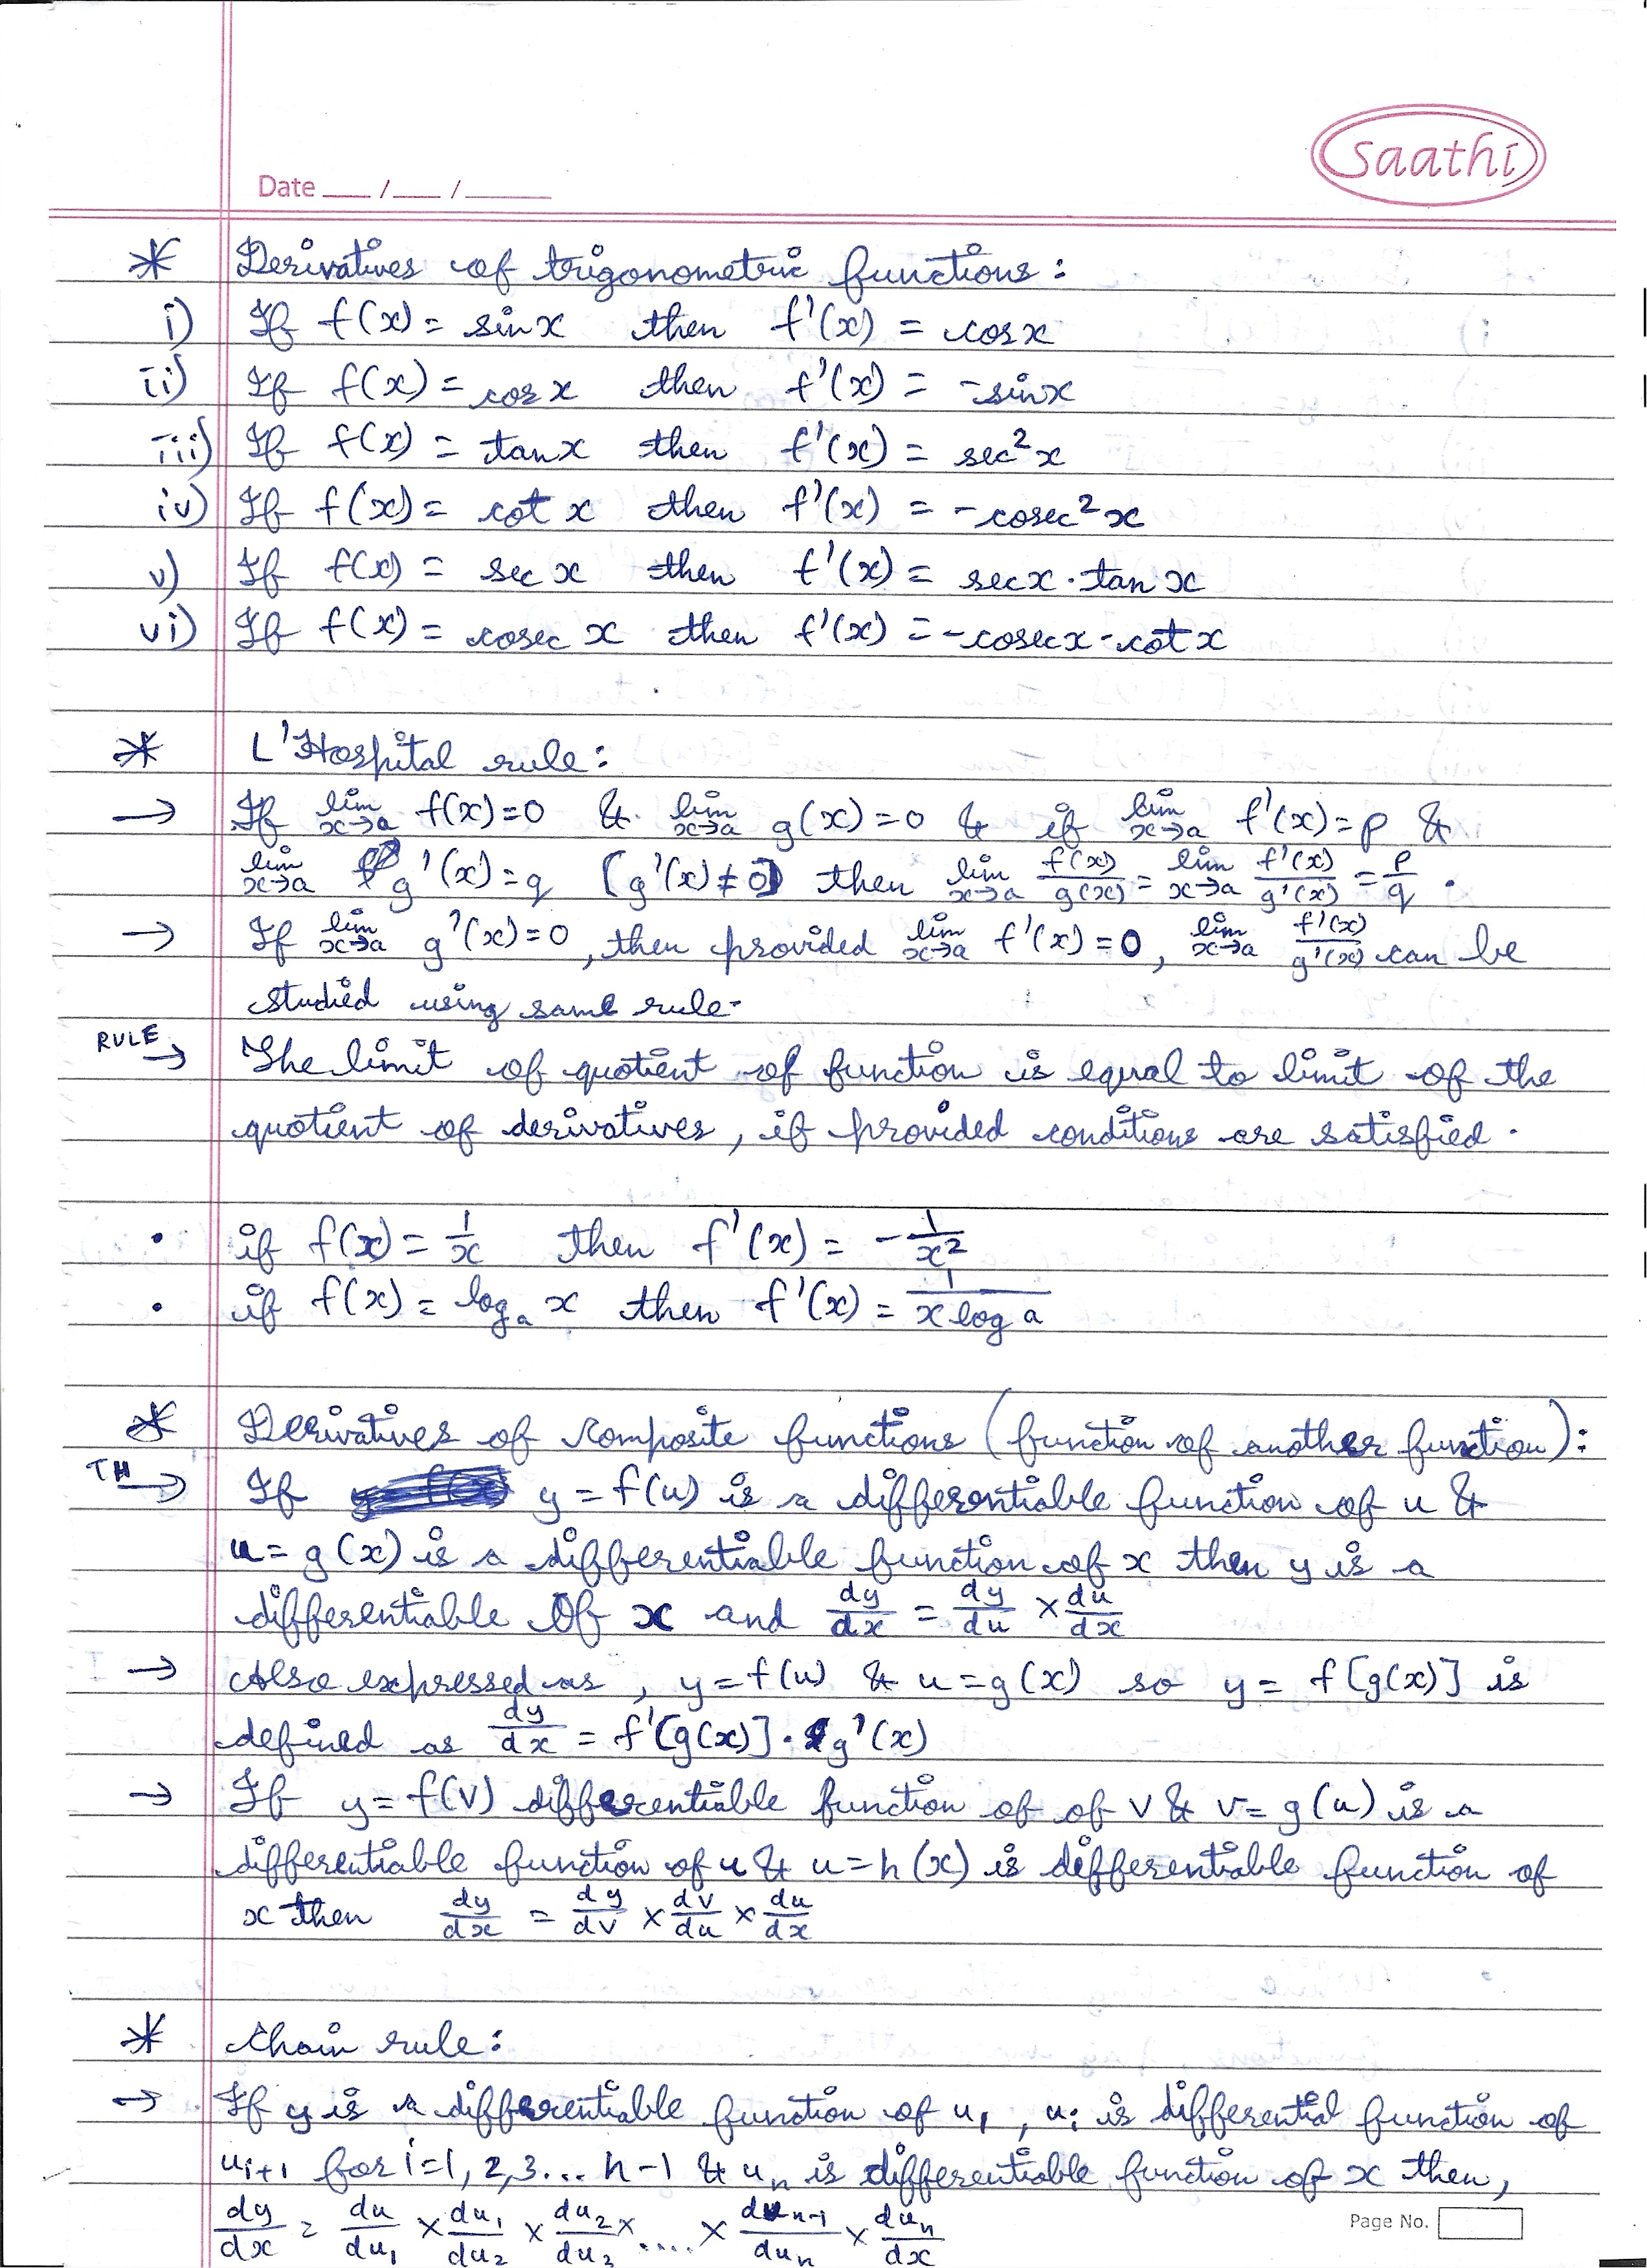 saathi
Date ___ / ___ / _____
* Derivatives of trigonometric functions:
i) If f(x) = sinx then f'(x) = cosx
ii) If f(x) = cosx then f'(x) = -sinx
iii) If f(x) = tanx then f'(x) = sec²x
iv) If f(x) = cot x then f'(x) = -cosec²x
v) If f(x) = sec x then f'(x) = secx·tan x
vi) If f(x) = cosec x then f'(x) = -cosecx·cotx
* L'Hospital rule:
→ If lim x→a f(x)=0 & lim x→a g(x)=0 & if lim x→a f'(x)=p &
lim x→a g'(x)=q [g'(x)≠0] then lim x→a f(x)/g(x) = lim x→a f'(x)/g'(x) = p/q.
→ If lim x→a g'(x)=0, then provided lim x→a f'(x)=0, lim x→a f'(x)/g'(x) can be
studied using same rule.
RULE → The limit of quotient of function is equal to limit of the
quotient of derivatives, if provided conditions are satisfied.
• if f(x) = 1/x then f'(x) = -1/x²
• if f(x) = logₐ x then f'(x) = 1/(x log a)
* Derivatives of composite functions (function of another function):
TH → If y = f(u) is a differentiable function of u &
u = g(x) is a differentiable function of x then y is a
differentiable Of x and dy/dx = dy/du × du/dx
→ Also expressed as, y=f(u) & u=g(x) so y = f[g(x)] is
defined as dy/dx = f'[g(x)]·g'(x)
→ If y=f(v) differentiable function of of v & v=g(u) is a
differentiable function of u & u=h(x) is differentiable function of
x then dy/dx = dy/dv × dv/du × du/dx
* Chain rule:
→ If y is a differentiable function of u₁, uᵢ is differential function of
uᵢ₊₁ for i=1,2,3...n-1 & uₙ is differentiable function of x then,
dy/dx = du/du₁ × du₁/du₂ × du₂/du₃ × .... × duₙ₋₁/duₙ × duₙ/dx
Page No.